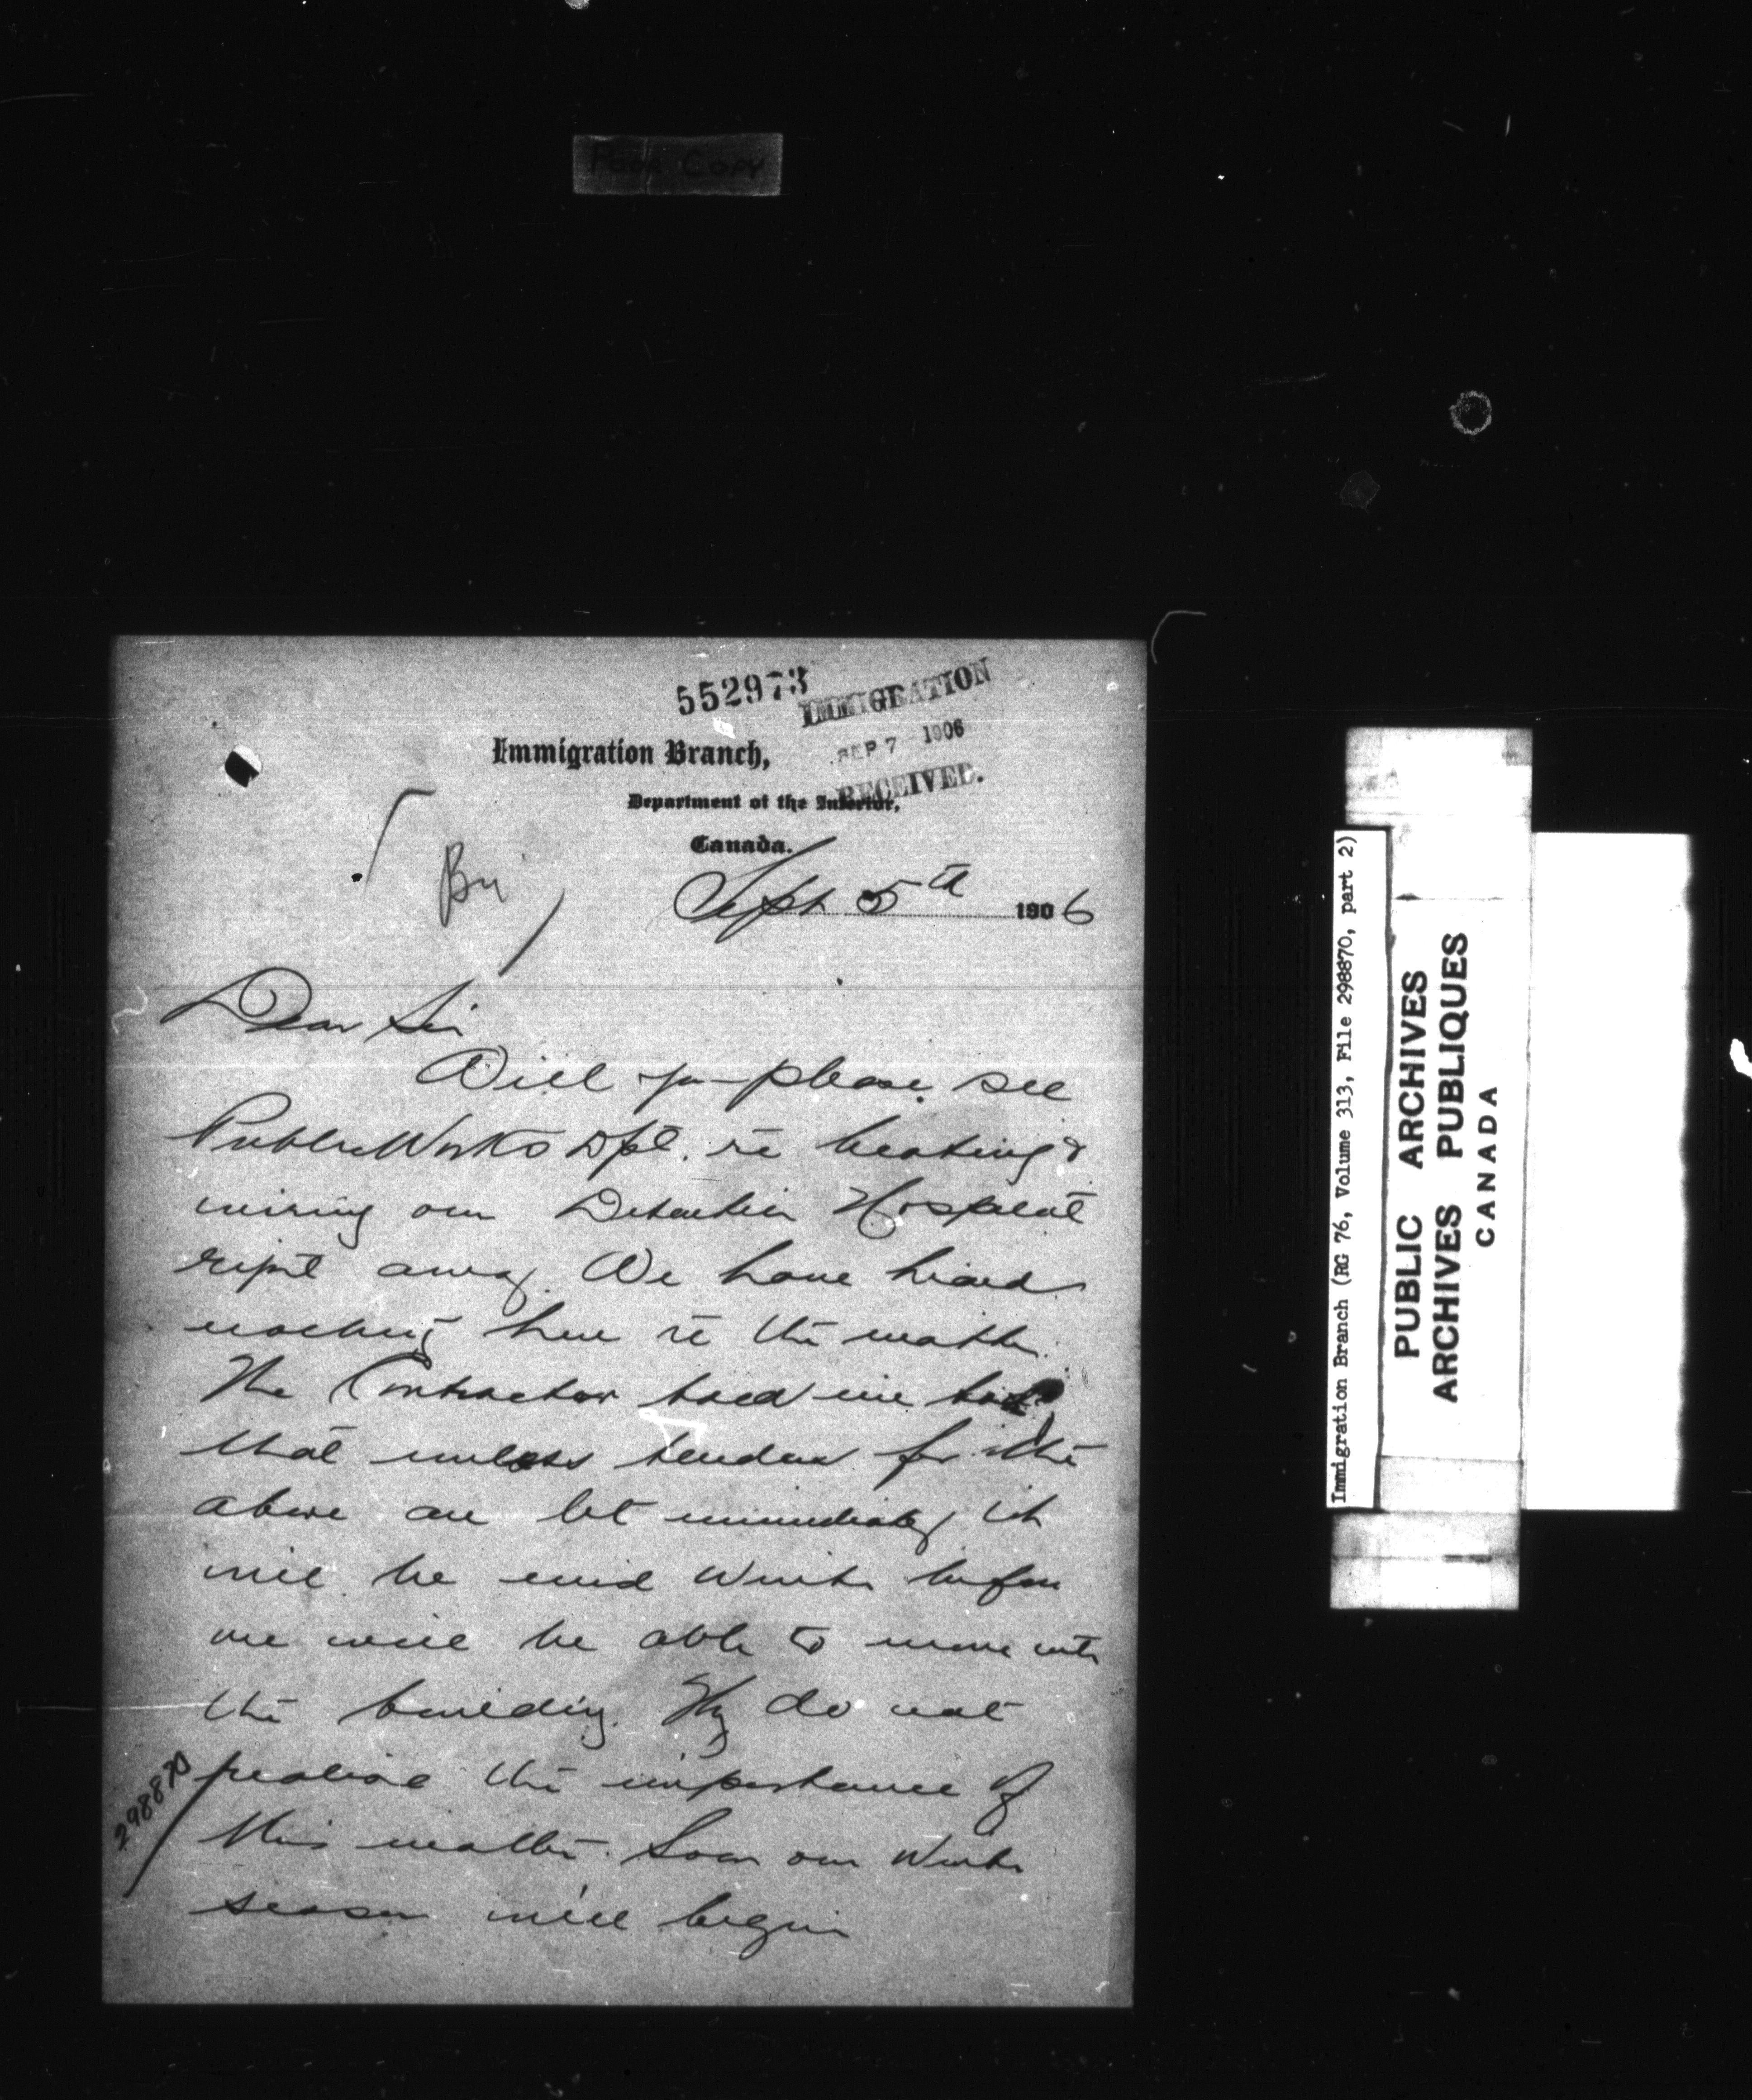 Poor Copy
552973
IMMIGRATION
SEP 7 1906
RECEIVED.
Immigration Branch,
Department of the Interior,
Canada.
Sept 5th 1906
Dear Sir
Will you please see
Public Works Dpt. re heating &
wiring our Detention Hospital
right away. We have heard
nothing here re the matter.
The Contractor told me
that unless tenders for the
above are let immediately it
will be mid Winter before
we will be able to move into
the building. They do not
realise the importance of
this matter. Soon our Winter
season will begin
298870
Immigration Branch (RG 76, Volume 313, File 298870, part 2)
PUBLIC ARCHIVES
ARCHIVES PUBLIQUES
CANADA